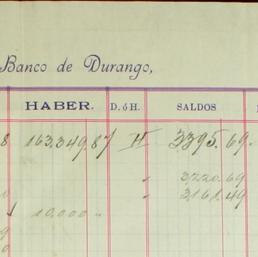 Banco de Durango,
HABER. D. ó H. SALDOS
8 163.349.87 H 3395.69.
" 3220.69
" 3161.49
10.000 "